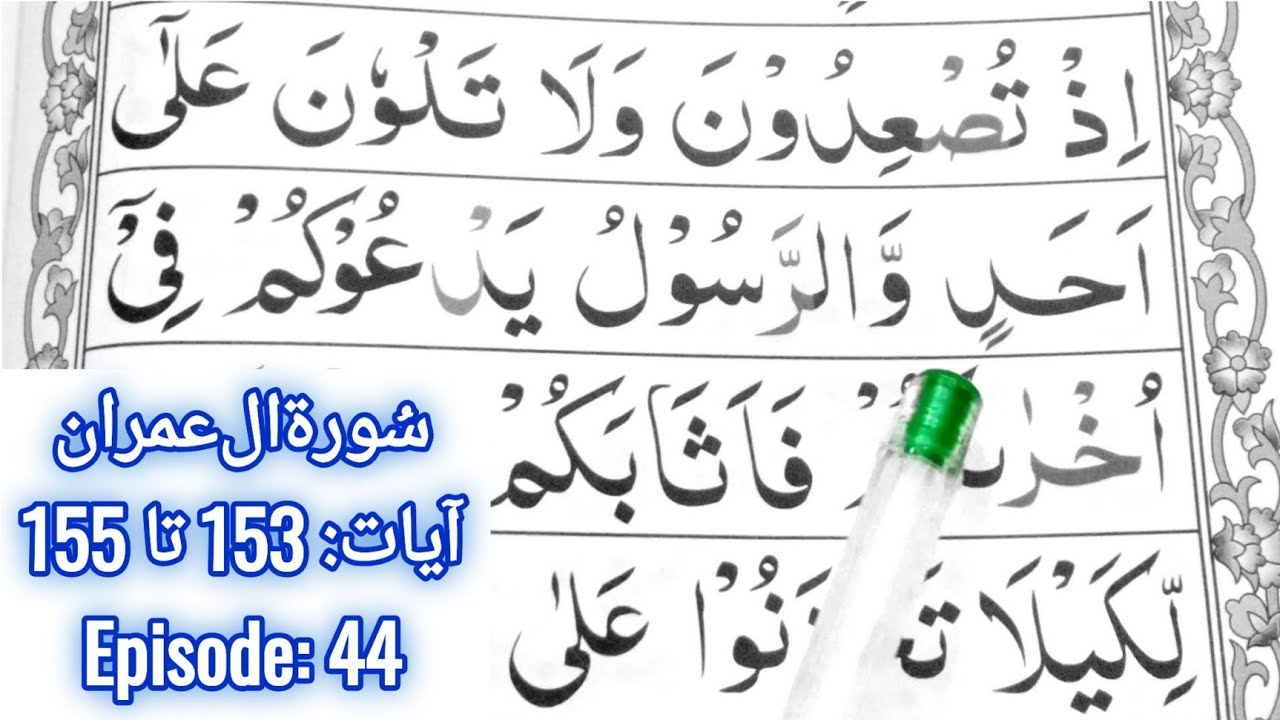 اِذْ تُصْعِدُوْنَ وَلَا تَلْوٗنَ عَلٰٓى
اَحَدٍ وَّالرَّسُوْلُ يَدْعُوْكُمْ فِىْٓ
فَاَثَابَكُمْ
لِّكَيْلَا عَلٰى
سُورۃال‌عمران
آیات: 153 تا 155
Episode: 44